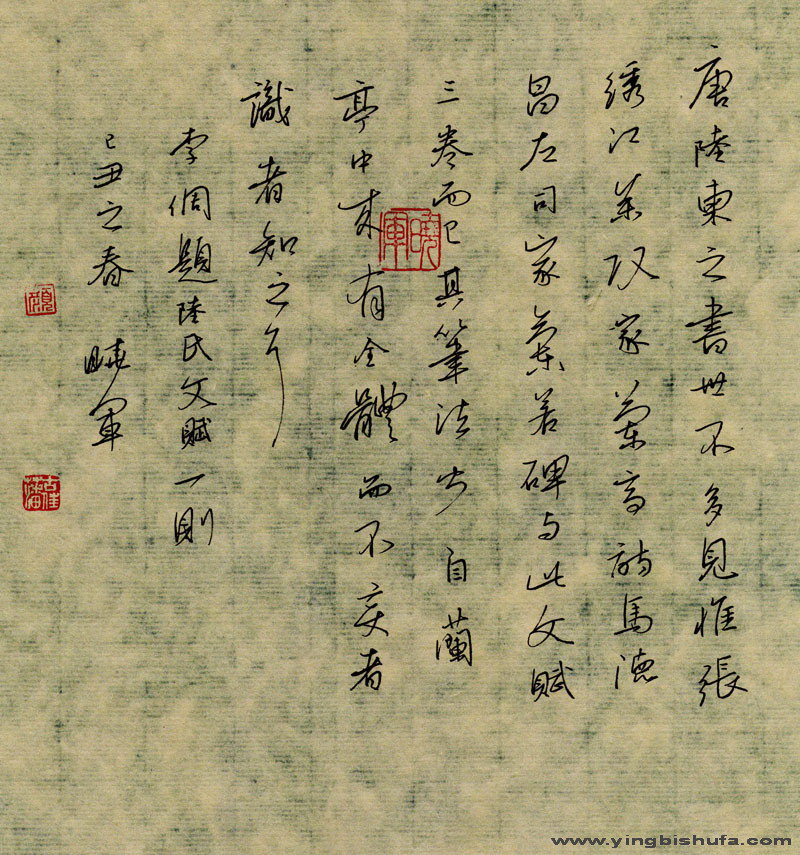 唐陸東之書世不多見惟張
綉江萊玖家蘭亭詩馬德
昌左司家蘭若碑与此文賦
三卷而已其筆法步自蘭
亭中来有全體而不变者
識者知之
李倜題陸氏文賦一則
己丑之春 曉軍
曉軍
古佳
www.yingbishufa.com